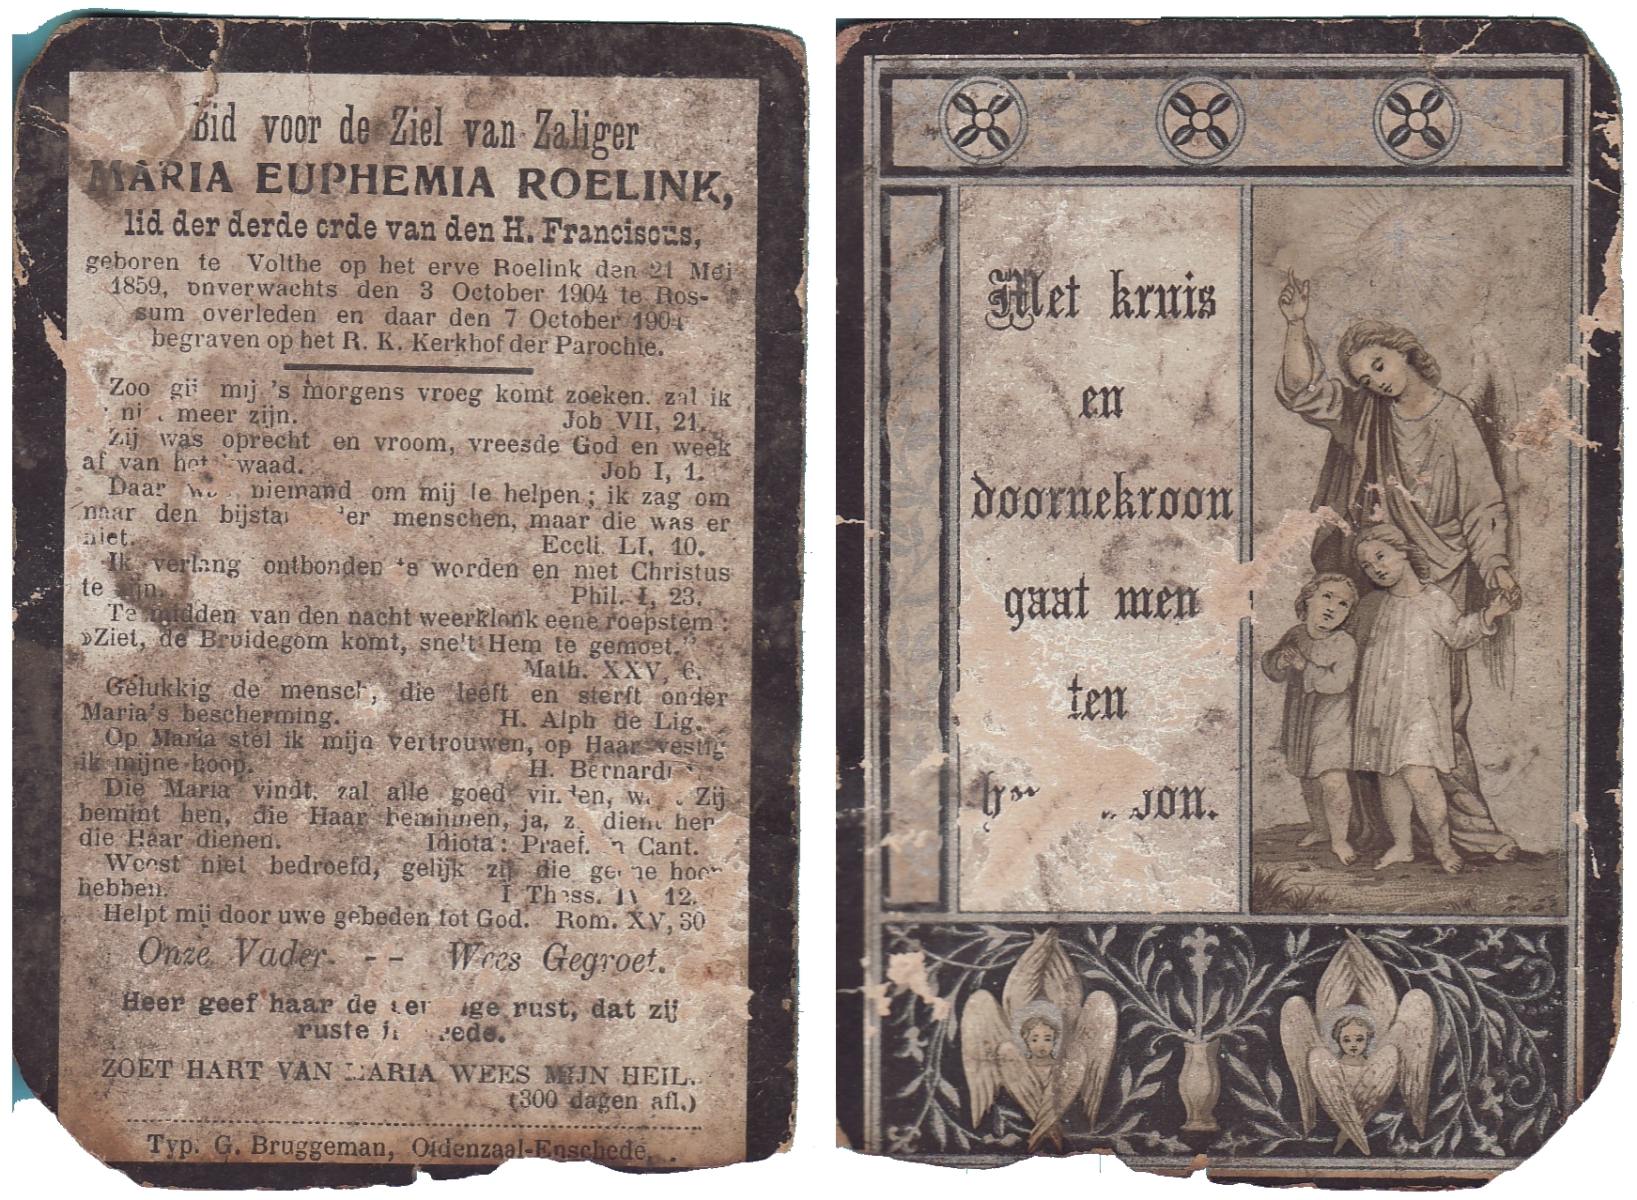 Bid voor de Ziel van Zaliger
MARIA EUPHEMIA ROELINK,
lid der derde orde van den H. Franciscus,
geboren te Volthe op het erve Roelink den 21 Mei
1859, onverwachts den 3 October 1904 te Ros-
sum overleden en daar den 7 October 1904
begraven op het R. K. Kerkhof der Parochie.
Zoo gij mij 's morgens vroeg komt zoeken, zal ik
meer zijn. Job VII, 21.
Zij was oprecht en vroom, vreesde God en week
af van het kwaad. Job I, 1.
Daar was niemand om mij te helpen; ik zag om
naar den bijstand der menschen, maar die was er
niet. Eccli. LI, 10.
Ik verlang ontbonden te worden en met Christus
te zijn. Phil. I, 23.
Te midden van den nacht weerklonk eene roepstem:
»Ziet, de Bruidegom komt, snelt Hem te gemoet."
Math. XXV, 6.
Gelukkig de mensch, die leeft en sterft onder
Maria's bescherming. H. Alph de Lig.
Op Maria stel ik mijn vertrouwen, op Haar vestig
ik mijne hoop. H.
Die Maria vindt, zal alle goed vinden, Zij
bemint hen, die Haar beminnen, ja, zij dient hen
die Haar dienen. Idiota: Praef. Cant.
Weest niet bedroefd, gelijk zij die geene hoop
hebben. I Thess. IV 12.
Helpt mij door uwe gebeden tot God. Rom. XV, 30
Onze Vader. -- Wees Gegroet.
Heer geef haar de eeuwige rust, dat zij
ruste in vrede.
ZOET HART VAN MARIA WEES MIJN HEIL.
(300 dagen afl.)
Typ. G. Bruggeman, Oldenzaal-Enschede.
Met kruis
en
doornekroon
gaat men
ten